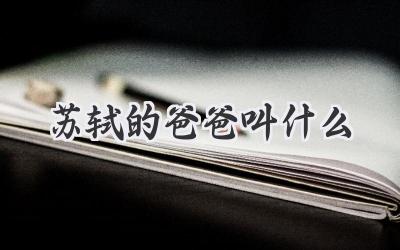 苏轼的爸爸叫什么